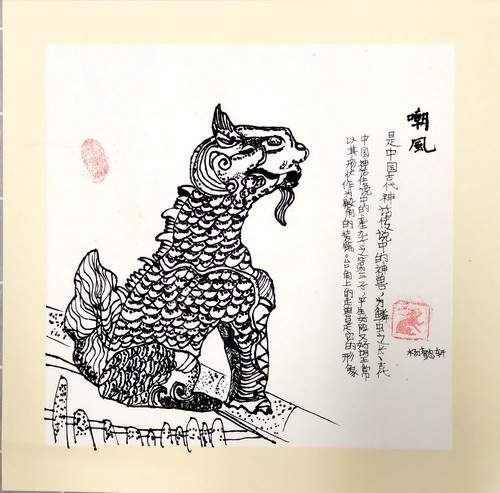 嘲風
是中国古代神话传说中的神兽,为鳞虫之长、古代
中国神话传说中的龙九子之第三子,平生好险又好望,常
以其形状作为殿角的装饰。台角上的走兽是它的形象
杨懿轩